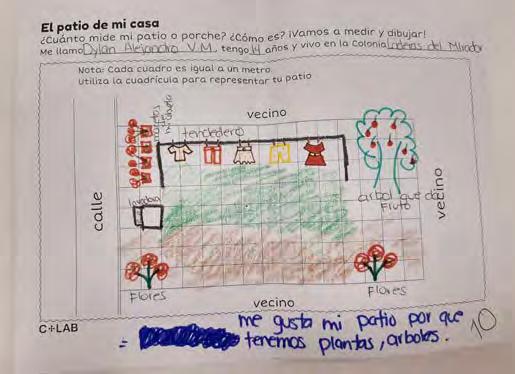 El patio de mi casa
¿Cuánto mide mi patio o porche? ¿Cómo es? ¡Vamos a medir y dibujar!
Me llamo Dylan Alejandro V.M. tengo 14 años y vivo en la Colonia Laderas del Mirador
Nota: Cada cuadro es igual a un metro
Utiliza la cuadrícula para representar tu patio
vecino
tendedero
calle
lavadora
arbol que da
Fruto
vecino
Flores
Flores
vecino
C+LAB
= me gusta mi patio por que
tenemos plantas, arboles.
10